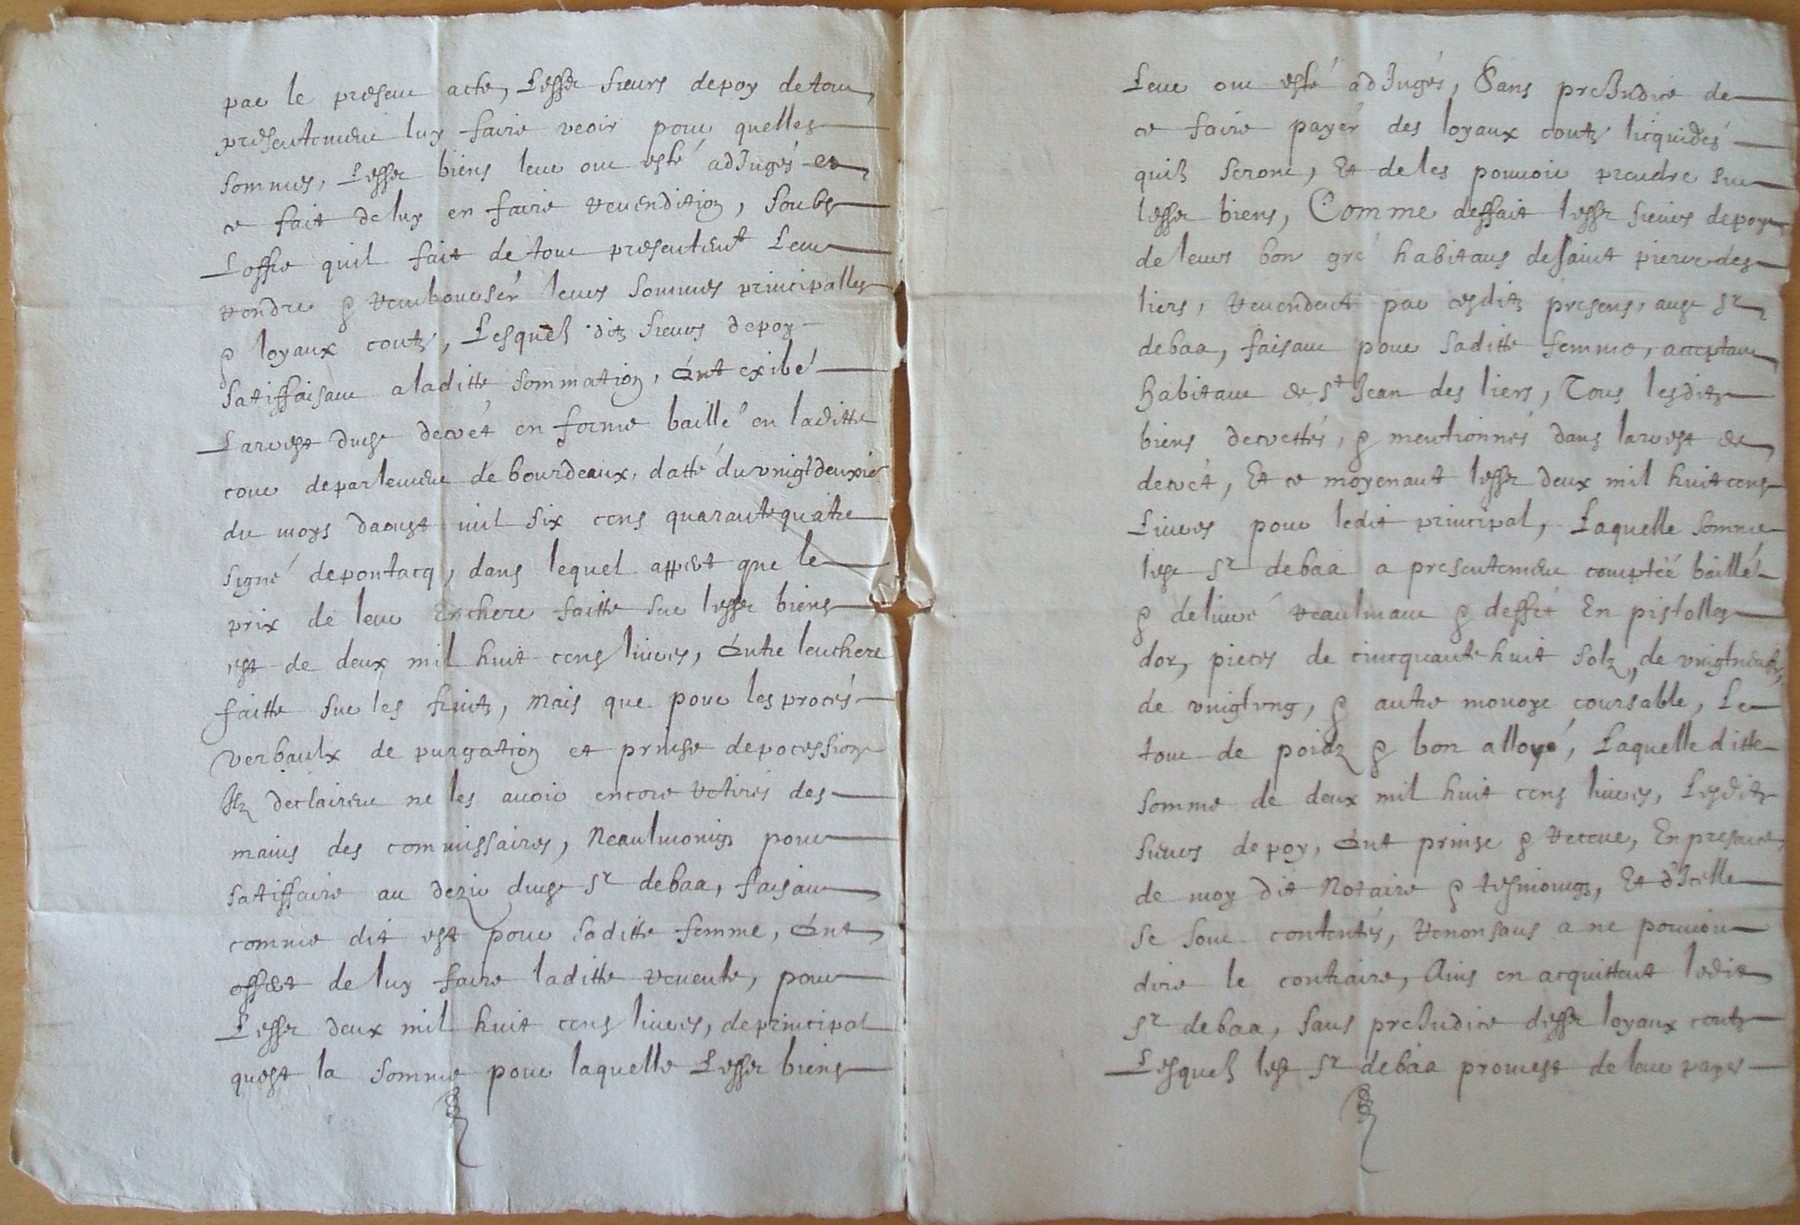 par le present acte, Lesstz sieurs depoy de tout
presentement luy faire veoir pour quelles
sommes, Lesstz biens leur ont esté adJugés et
ce fait de luy en faire revendition, soubz
Loffre quil fait de tout presentemt Leur
rendre & rembourser leurs sommes principalles
& loyaux coutz, Lesquelz ditz sieurs depoy
satiffaisant a laditte sommation, ont exibé
Larrest dudt decret en forme baillé en laditte
cour de parlement de bourdeaux, datté du vnigtdeuxie
du moys daoust mil six cens quarante quatre
signé depontacq, dans lequel appert que le
prix de leur Enchere faitte sur lesstz biens
est de deux mil huit cens liures, outre lenchere
faitte sur les fruitz, mais que pour les procés
verbaulx de purgation et prinse de pocession
Ilz déclairent ne les auoir encore retirés des
mains des commissaires, Neaulmoings pour
satiffaire au dezir dudt sr debaa, faisant
comme dit est pour saditte femme, ont
offert de luy faire laditte revente, pour
Lesstz deux mil huit cens liures, de principal
quest la somme pour laquelle Lesstz biens
Leur ont esté adJugés, Sans preJudice de
ce faire payer des loyaux coutz licquidés
quilz seront, Et de les pouuoir prendre sur
lesstz biens, Comme deffait lesstz sieurs depoy
de leurs bon gré habitans de saint pierre des
liers, revendent par cesditz presens, audt sr
debaa, faisant pour saditte femme, acceptant
habitant de st Jean des liers, Tous lesditz
biens decrettés, & mentionnés dans larrest de
decret, Et ce moyenant lesstz deux mil huit cens
Liures pour ledit principal, Laquelle somme
ledt sr debaa a presentement comptéé baillé
& deliuré reaulmant & deffét En pistolles
dor, pieces de cincquante huit solz, de vnigtneuf,
de vnigtvng, & autre monoye coursable, Le
tout de poidz & bon alloyé, Laquelle ditte
somme de deux mil huit cens liures, Lesditz
sieurs depoy, ont prinse & receue, En presance
de moy dit Notaire & tesmoings, Et d'Icelle
se sont contentés, renonsans a ne pouuoir
dire le contraire, Ains en acquittent ledit
sr debaa, sans preJudice desstz loyaux coutz
Lesquelz ledt sr debaa promest de leur payer